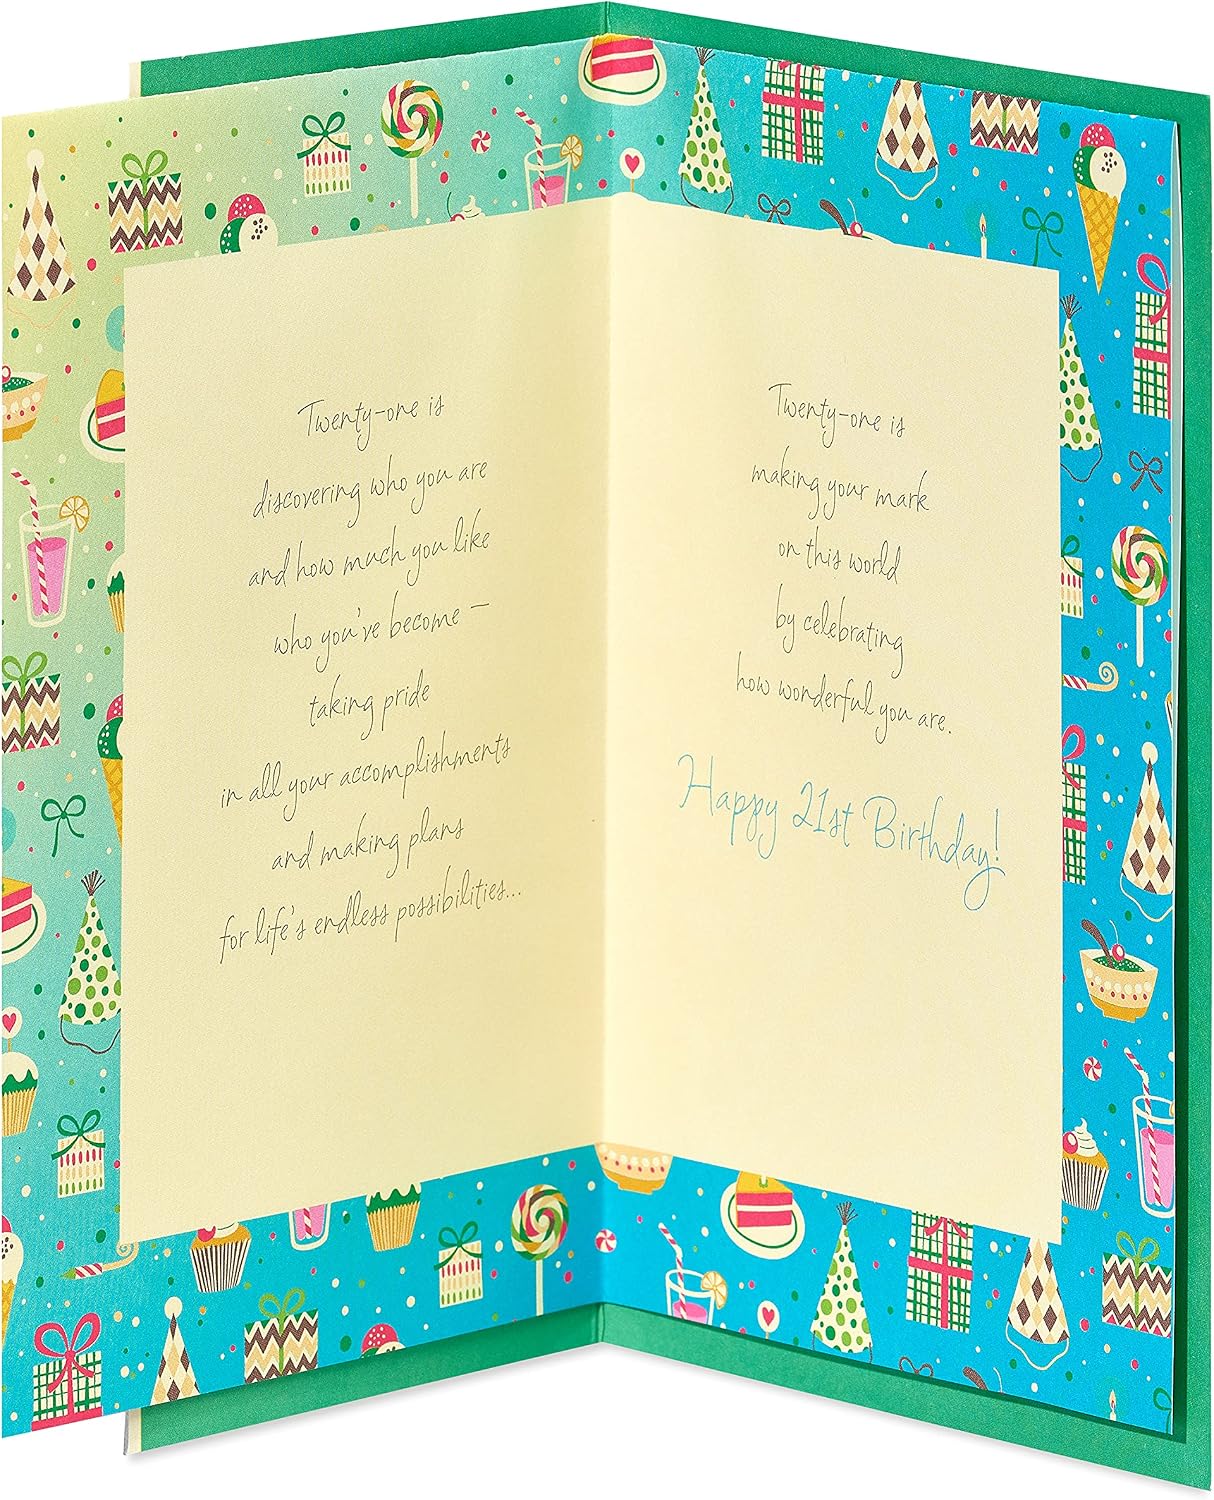 Twenty-one is
discovering who you are
and how much you like
who you've become –
taking pride
in all your accomplishments
and making plans
for life's endless possibilities...
Twenty-one is
making your mark
on this world
by celebrating
how wonderful you are.
Happy 21st Birthday!